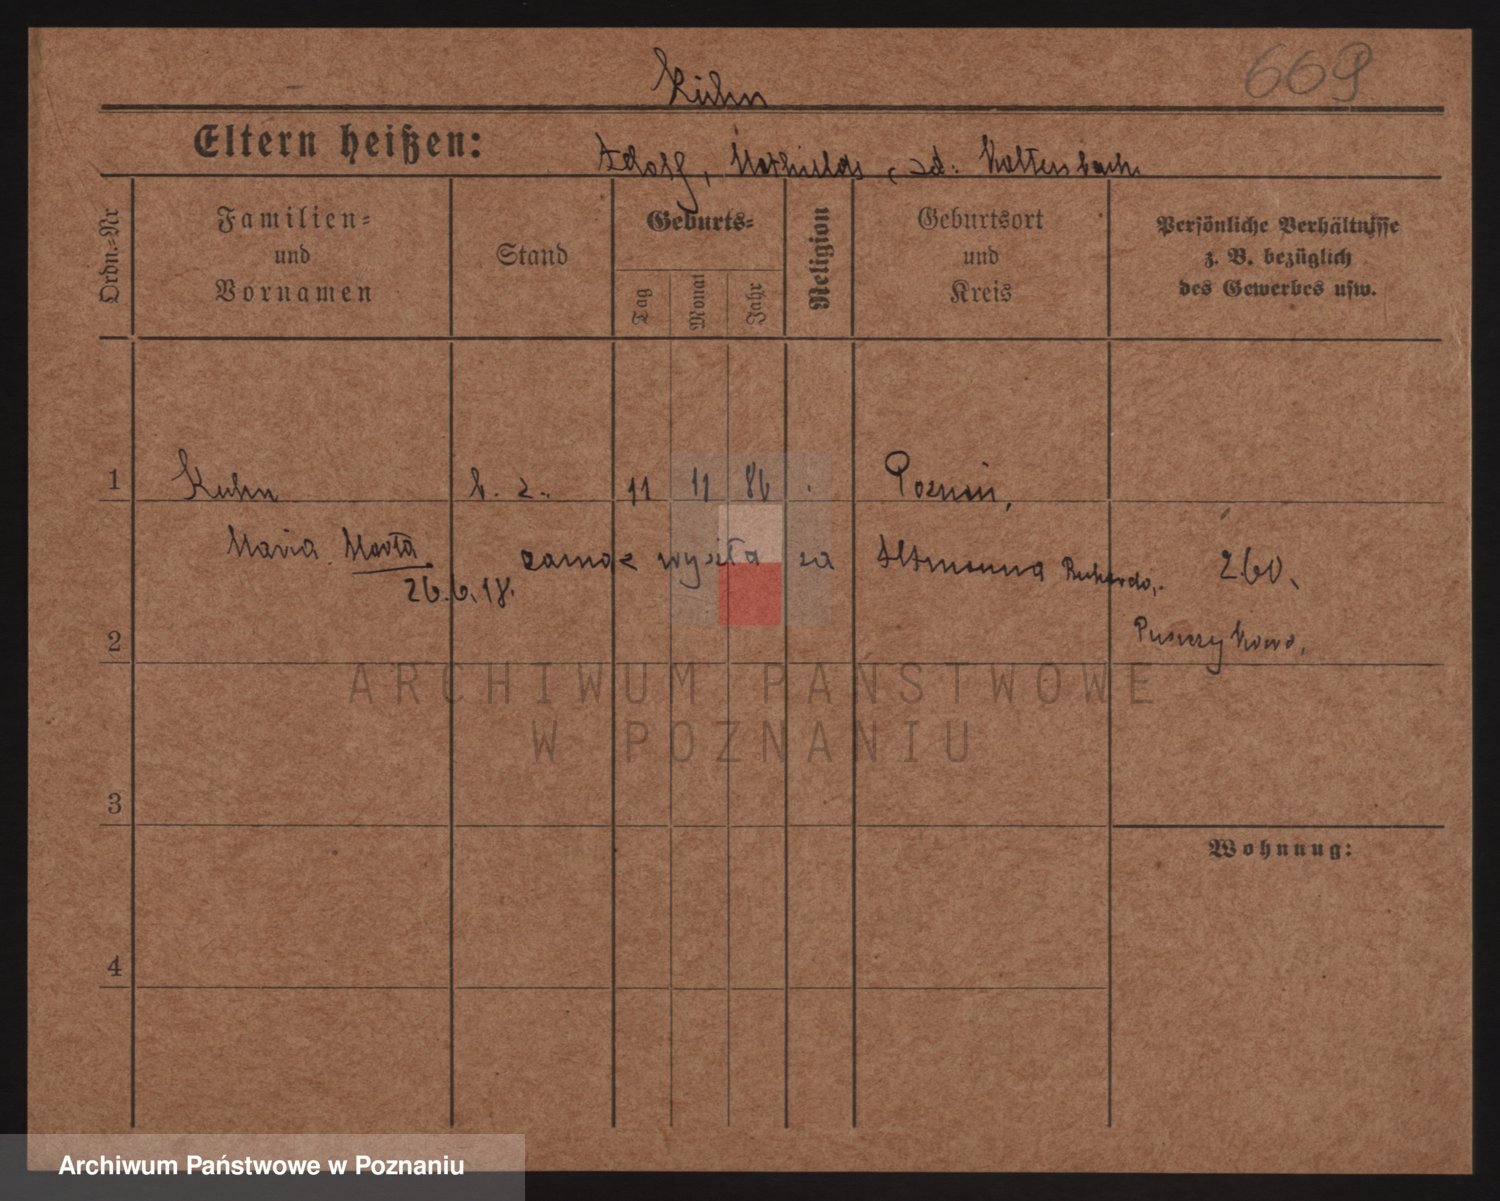 669
Kuhn
Eltern heißen: Adolf, Mathilda z d. Kaltenbach
Ordn.=Nr
Familien=
und
Vornamen
Stand
Geburts=
Tag
Monat
Jahr
Religion
Geburtsort
und
Kreis
Persönliche Verhältnisse
z. B. bezüglich
des Gewerbes usw.
1 Kuhn b. z. 11 11 86 Poznań,
Maria Marta zamąż wyszła za Altmanna Richarda, 260,
26.6.18.
2 Puszczykowo,
ARCHIWUM PAŃSTWOWE
W POZNANIU
3
Wohnung:
4
Archiwum Państwowe w Poznaniu